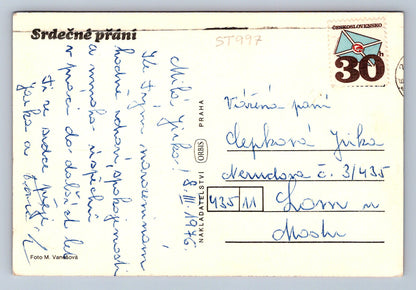 Srdečné přání
ST997
ČESKOSLOVENSKO
30
Milá Jirko! 8. III. 1976.
K Tvým narozeninám
hodně zdraví, spokojenosti
a mnoho úspěchů
v práci do dalších let
Ti ze srdce přeje
Jarka a
Foto M. Vanasová
NAKLADATELSTVÍ ORBIS PRAHA
Vážená paní
Jirka
Nerudova č. 3/435
435 11 Lom u
Mostu